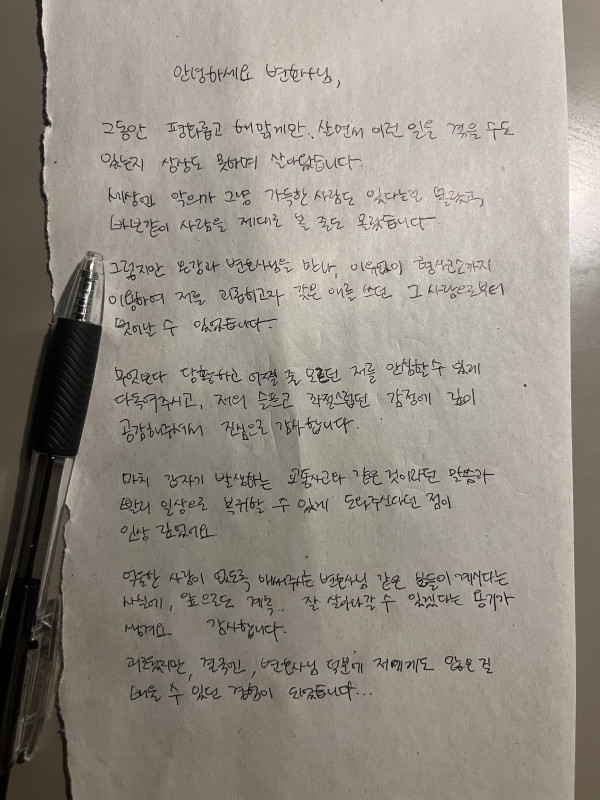 안녕하세요 변호사님,
그동안 평화롭고 해맑게만.. 살면서 이런 일을 겪을 수도
있는지 상상도 못하며 살아왔습니다.
세상엔 악의가 그냥 가득한 사람도 있다는걸 몰랐고,
바보같이 사람을 제대로 볼 줄도 몰랐습니다.
그렇지만 운좋과 변호사님을 만나, 이유없이 형사고소까지
이용하여 저를 괴롭히고자 갖은 애를 쓰던 그 사람으로부터
벗어날 수 있었습니다.
무엇보다 당황하고 어쩔 줄 모르던 저를 안심할 수 있게
다독여주시고, 저의 슬프고 좌절스럽던 감정에 깊이
공감해주셔서 진심으로 감사합니다.
마치 갑자기 발생하는 교통사고와 같은 것이라던 말씀과
빨리 일상으로 복귀할 수 있게 도와주신다던 점이
인상 깊었어요
억울한 사람이 없도록 애써주시는 변호사님 같은 분들이 계시다는
사실에, 앞으로도 계속.. 잘 살아나갈 수 있겠다는 용기가
생겨요 감사합니다.
괴로웠지만, 결국엔, 변호사님 덕분에 저에게도 많은 걸
배울 수 있던 경험이 되었습니다...